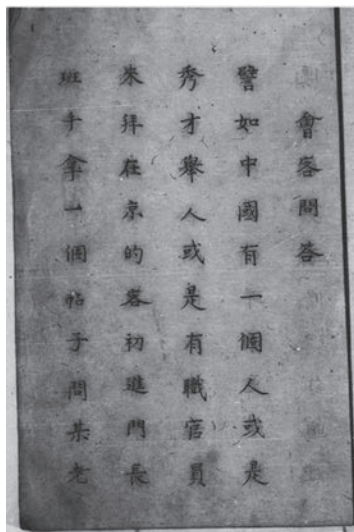 會客問答
譬如中國有一個人或是
秀才舉人或是有職官員
來拜在京的客初進門長
班手拿一個帖子問某老